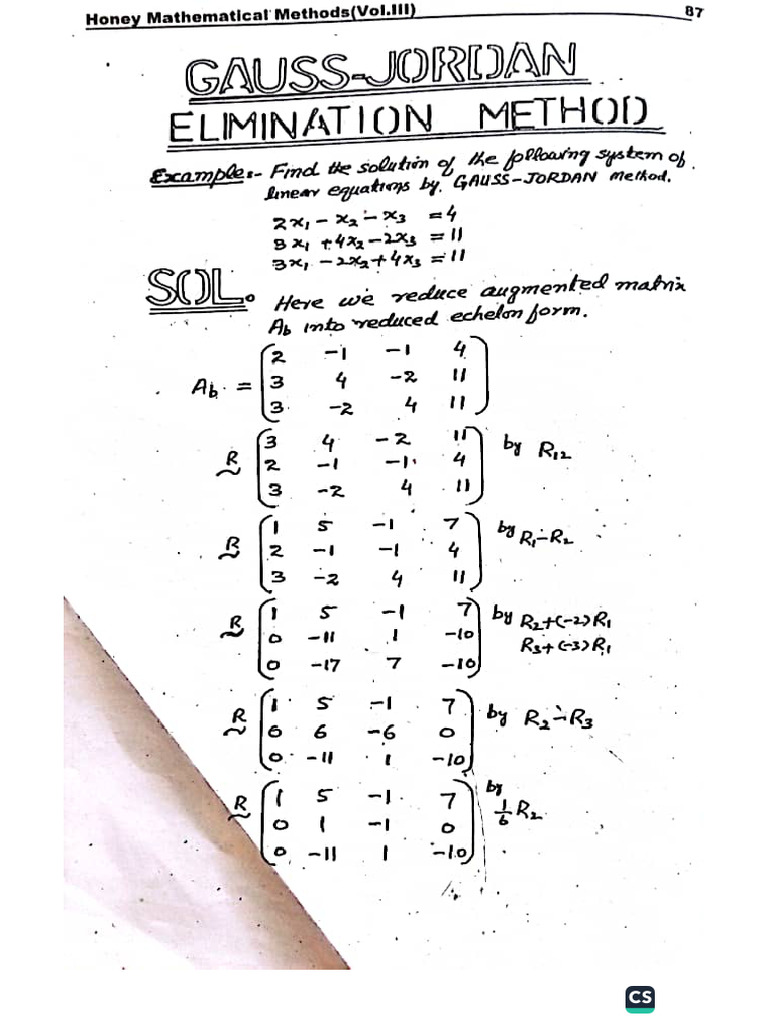 Honey Mathematical Methods(Vol.III) 87
GAUSS-JORDAN
ELIMINATION METHOD
Example:- Find the solution of the following system of
linear equations by GAUSS-JORDAN Method.
2x₁ - x₂ - x₃ = 4
3x₁ + 4x₂ - 2x₃ = 11
3x₁ - 2x₂ + 4x₃ = 11
SOL. Here we reduce augmented matrix
Ab into reduced echelon form.
2 -1 -1 4
Ab = 3 4 -2 11
3 -2 4 11
3 4 -2 11 by R₁₂
R 2 -1 -1 4
~ 3 -2 4 11
1 5 -1 7 by R₁-R₂
R 2 -1 -1 4
~ 3 -2 4 11
1 5 -1 7 by R₂+(-2)R₁
R 0 -11 1 -10 R₃+(-3)R₁
~ 0 -17 7 -10
1 5 -1 7 by R₂-R₃
R 0 6 -6 0
~ 0 -11 1 -10
1 5 -1 7 by
R 0 1 -1 0 1/6 R₂
~ 0 -11 1 -10
CS